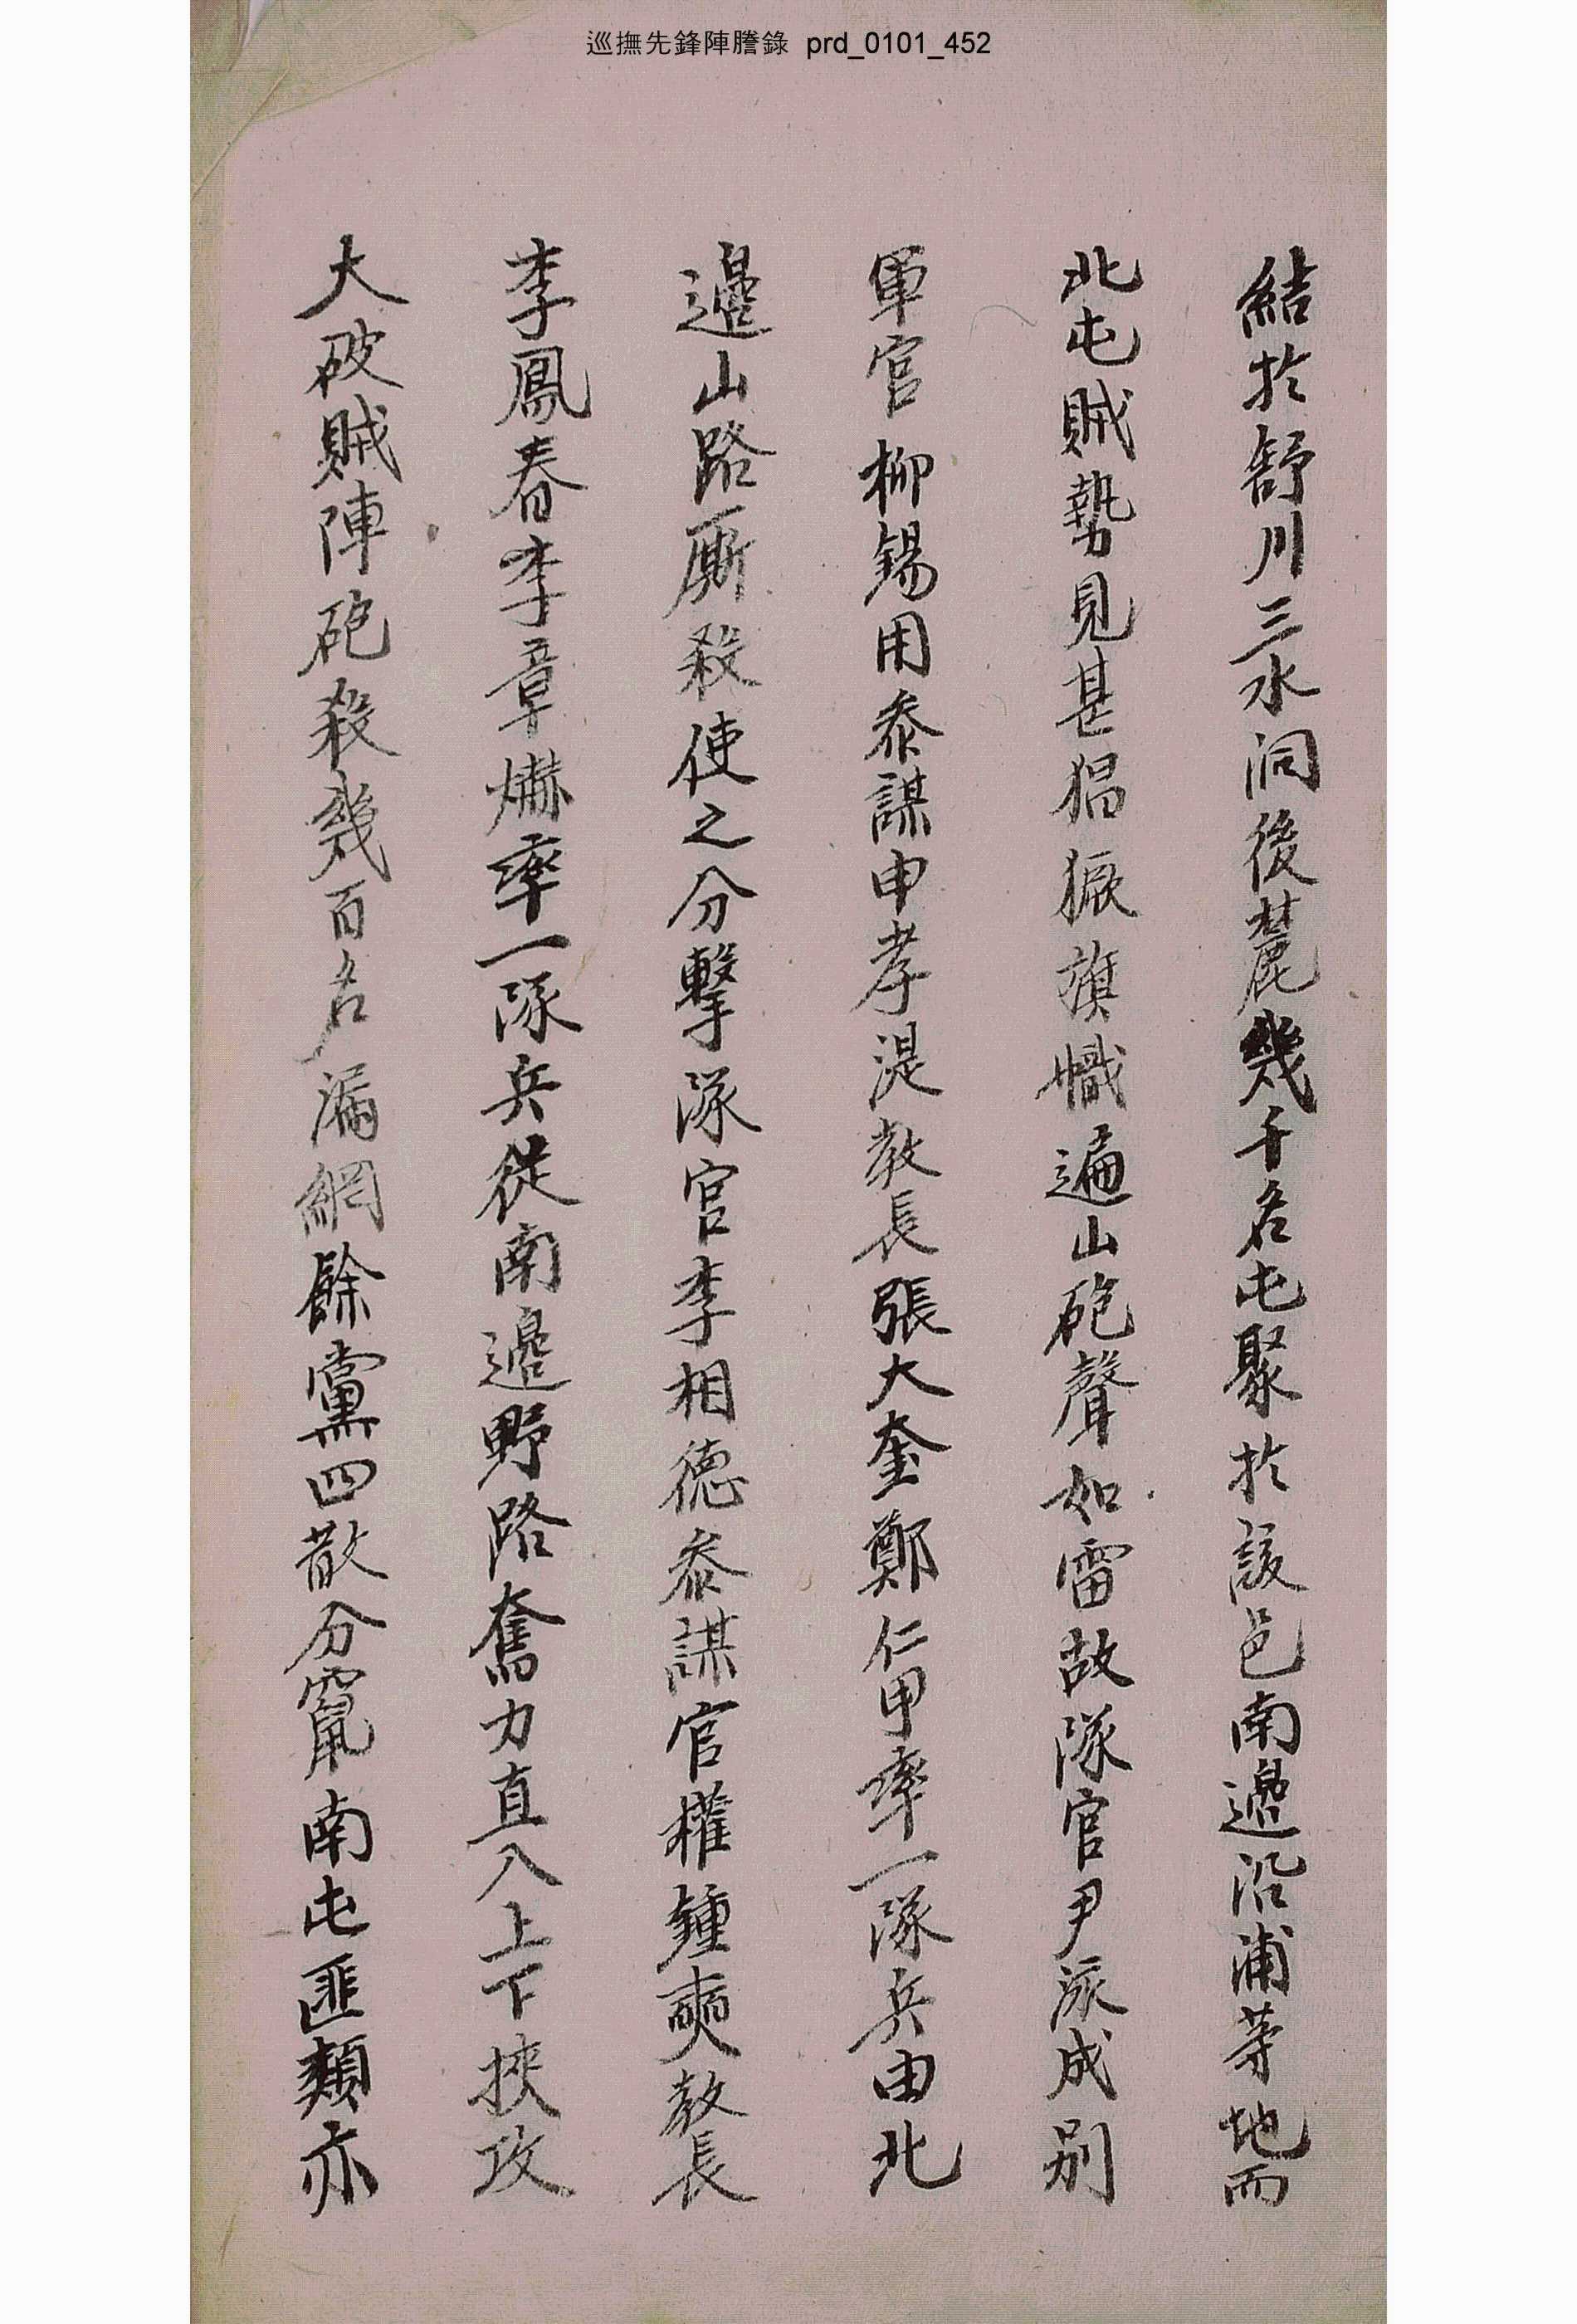 巡撫先鋒陣謄錄 prd_0101_452
結於舒川三水洞後麓幾千名屯聚於該邑南邊沿浦等地而
北屯賊勢見甚猖獗旗幟遍山砲聲如雷故隊官尹泳成別
軍官柳錫用叅謀申孝湜教長張大奎鄭仁甲率一隊兵由北
邊山路厮殺使之分擊隊官李相德叅謀官權鍾奭教長
李鳳春李章爀率一隊兵從南邊野路奮力直入上下挾攻
大破賊陣砲殺幾百名漏網餘黨四散分竄南屯匪類亦